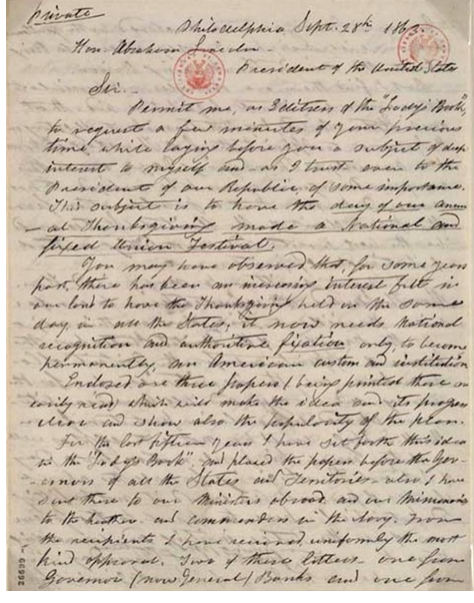 Private
Philadelphia Sept. 28th 1863
Hon. Abraham Lincoln -
President of the United States
Sir. -
Permit me, as Editress of the "Lady's Book",
to request a few minutes of your precious
time, while laying before you a subject of deep
interest to myself and as I trust even to the
President of our Republic, of some importance.
This subject is to have the day of our annu
al Thanksgiving made a National and
fixed Union Festival.
You may have observed that, for some years
past, there has been an increasing interest felt in
our land to have the Thanksgiving held on the same
day, in all the States; it now needs National
recognition and authoritive fixation, only, to become
permanently, an American custom and institution
Enclosed are three papers (being printed these are
easily read) which will make the idea and its progress
clear and show also the popularity of the plan.
For the last fifteen years I have set forth this idea
in the "Lady's Book", and placed the papers before the Gov-
ernors of all the States and Territories - also I have
sent these to our Ministers abroad, and our Missionaries
to the heathen and commanders in the Navy. From
the recipients I have received, uniformly the most
kind approval. Two of these letters, one from
Governor (now General) Banks and one from
26699